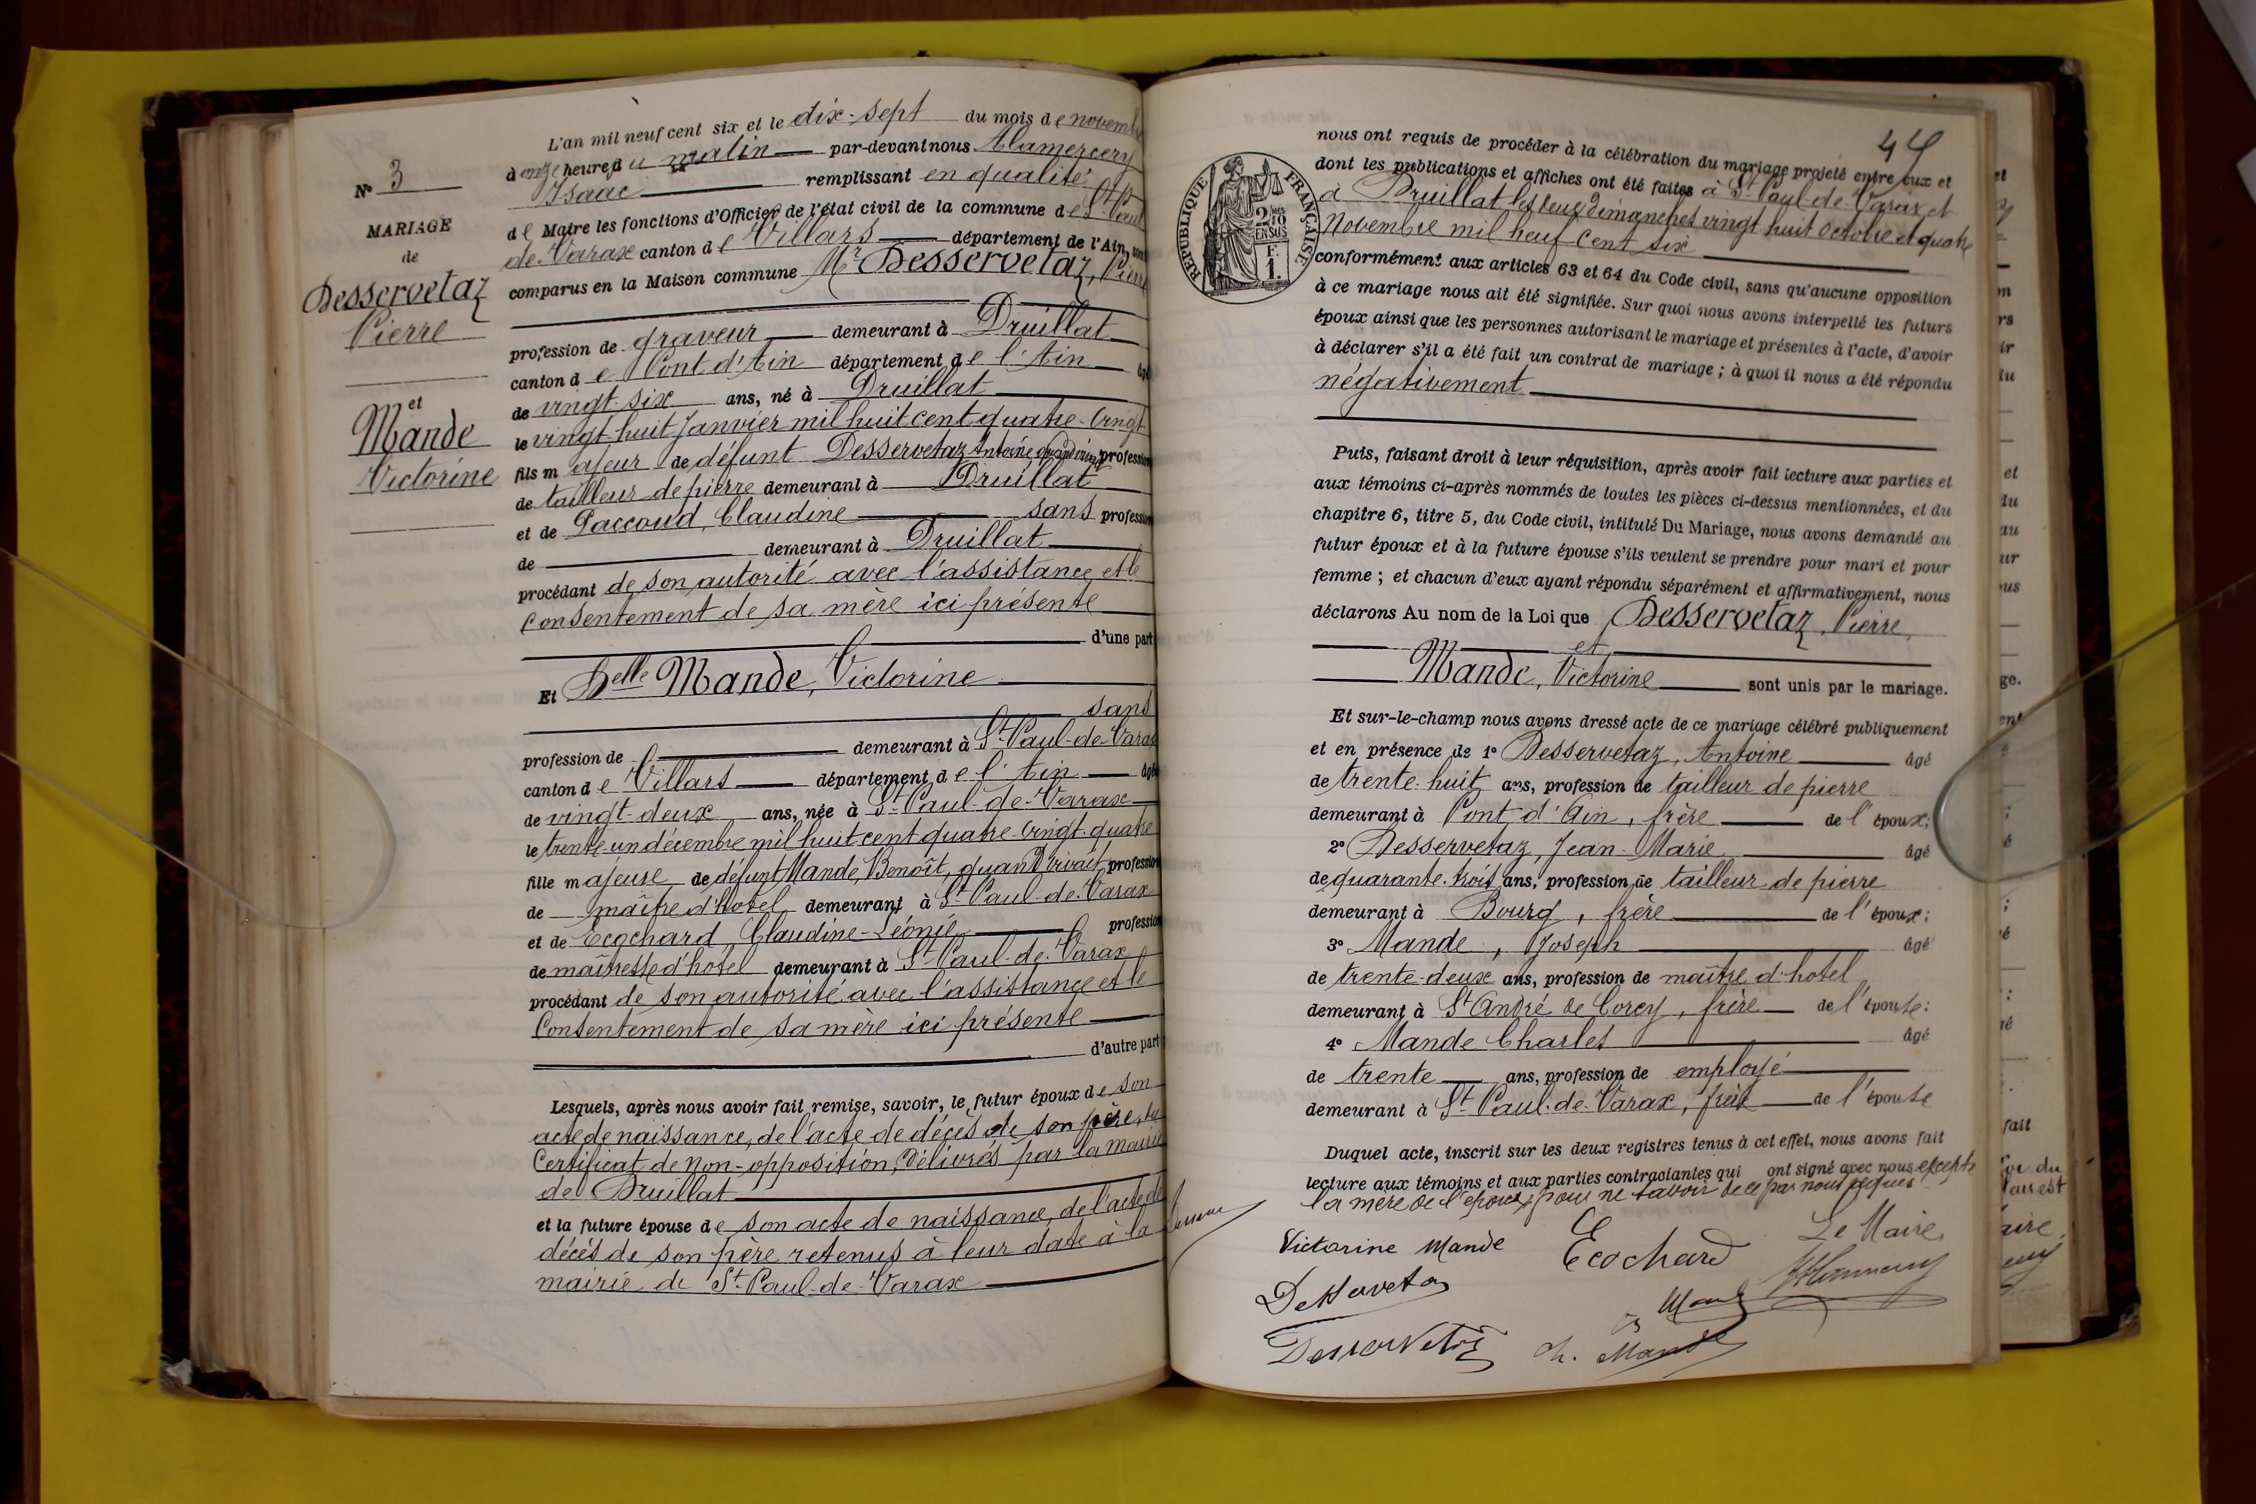 L'an mil neuf cent six et le dix-sept du mois de novembre
à onze heures du matin par-devant nous Alamercery
Isaac remplissant en qualité
de Maire les fonctions d'Officier de l'état civil de la commune de St Paul
de-Varax canton de Villars département de l'Ain, sont
comparus en la Maison commune Mr Desservetaz, Pierre
profession de graveur demeurant à Druillat
canton de Pont d'Ain département de l'Ain âgé
de vingt-six ans, né à Druillat
le vingt-huit Janvier mil huit cent quatre-vingt
fils majeur de défunt Desservetaz Antoine quand vivait profession
de tailleur de pierre demeurant à Druillat
et de Paccoud, Claudine sans profession
de demeurant à Druillat
procédant de son autorité avec l'assistance et le
consentement de sa mère ici présente
d'une part
Et Delle Mande, Victorine
sans
profession de demeurant à St Paul-de-Varax
canton de Villars département de l'Ain âgée
de vingt-deux ans, née à St Paul-de-Varax
le trente-un décembre mil huit cent quatre-vingt-quatre
fille majeure de défunt Mande, Benoît, quand vivait, profession
de maître d'hotel demeurant à St Paul-de-Varax
et de Ecochard Claudine-Léonie profession
de maîtresse d'hotel demeurant à St Paul-de-Varax
procédant de son autorité avec l'assistance et le
Consentement de sa mère ici présente
d'autre part
Lesquels, après nous avoir fait remise, savoir, le futur époux de son
acte de naissance, de l'acte de décès de son père, du
Certificat de non-opposition, délivrés par la mairie
de Druillat
et la future épouse de son acte de naissance, de l'acte de
décès de son père retenus à leur date à la
mairie de St Paul-de-Varax
No 3
MARIAGE
de
Desservetaz
Pierre
et
Mande
Victorine
44
nous ont requis de procéder à la célébration du mariage projeté entre eux et
dont les publications et affiches ont été faites à St Paul-de-Varax et
à Druillat les deux dimanches vingt huit Octobre et quatre
Novembre mil neuf cent six
conformément aux articles 63 et 64 du Code civil, sans qu'aucune opposition
à ce mariage nous ait été signifiée. Sur quoi nous avons interpellé les futurs
époux ainsi que les personnes autorisant le mariage et présentes à l'acte, d'avoir
à déclarer s'il a été fait un contrat de mariage ; à quoi il nous a été répondu
négativement
Puis, faisant droit à leur réquisition, après avoir fait lecture aux parties et
aux témoins ci-après nommés de toutes les pièces ci-dessus mentionnées, et du
chapitre 6, titre 5, du Code civil, intitulé Du Mariage, nous avons demandé au
futur époux et à la future épouse s'ils veulent se prendre pour mari et pour
femme ; et chacun d'eux ayant répondu séparément et affirmativement, nous
déclarons Au nom de la Loi que Desservetaz, Pierre,
et
Mande, Victorine sont unis par le mariage.
Et sur-le-champ nous avons dressé acte de ce mariage célébré publiquement
et en présence de 1° Desservetaz, Antoine âgé
de trente-huit ans, profession de tailleur de pierre
demeurant à Pont d'Ain, frère de l'époux;
2° Desservetaz, Jean-Marie âgé
de quarante-trois ans, profession de tailleur de pierre
demeurant à Bourg, frère de l'époux;
3° Mande, Joseph âgé
de trente-deux ans, profession de maître d'hotel
demeurant à St André de Corcy, frère de l'épouse:
4° Mande Charles âgé
de trente ans, profession de employé
demeurant à St Paul-de-Varax, frère de l'épouse
Duquel acte, inscrit sur les deux registres tenus à cet effet, nous avons fait
lecture aux témoins et aux parties contractantes qui ont signé avec nous excepté
la mère de l'époux, pour ne savoir de ce par nous requis
Victorine Mande Ecochard Le Maire,
Desservetaz Mande
Desservetaz Ch. Mande
RÉPUBLIQUE FRANÇAISE